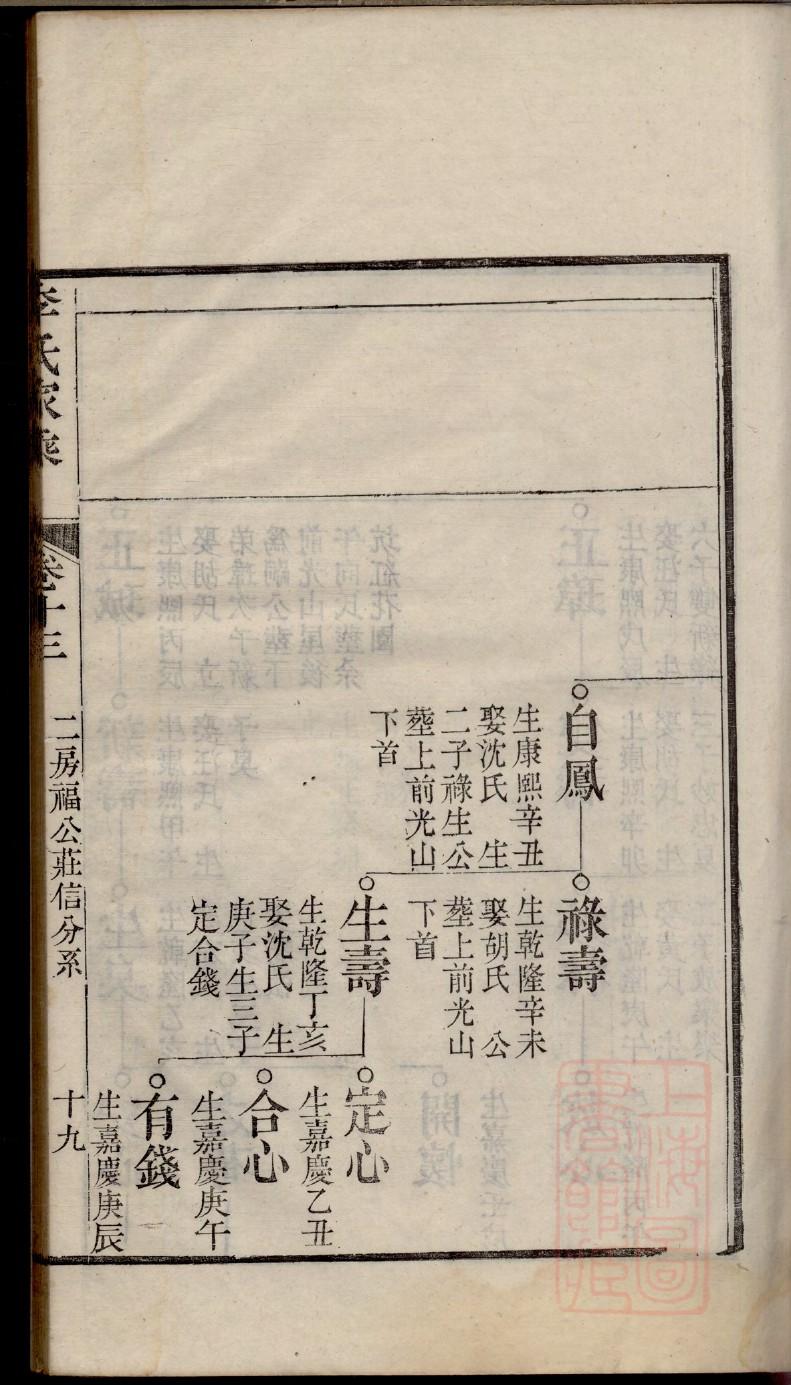 自鳳
生康熙辛丑
娶沈氏 生
二子祿生公
塟上前光山
下首
祿壽
生乾隆辛未
娶胡氏 公
塟上前光山
下首
生壽
生乾隆丁亥
娶沈氏 生
庚子生三子
定合錢
定心
生嘉慶乙丑
合心
生嘉慶庚午
有錢
生嘉慶庚辰
李氏家乘
卷十三
二房福公莊信分系
十九